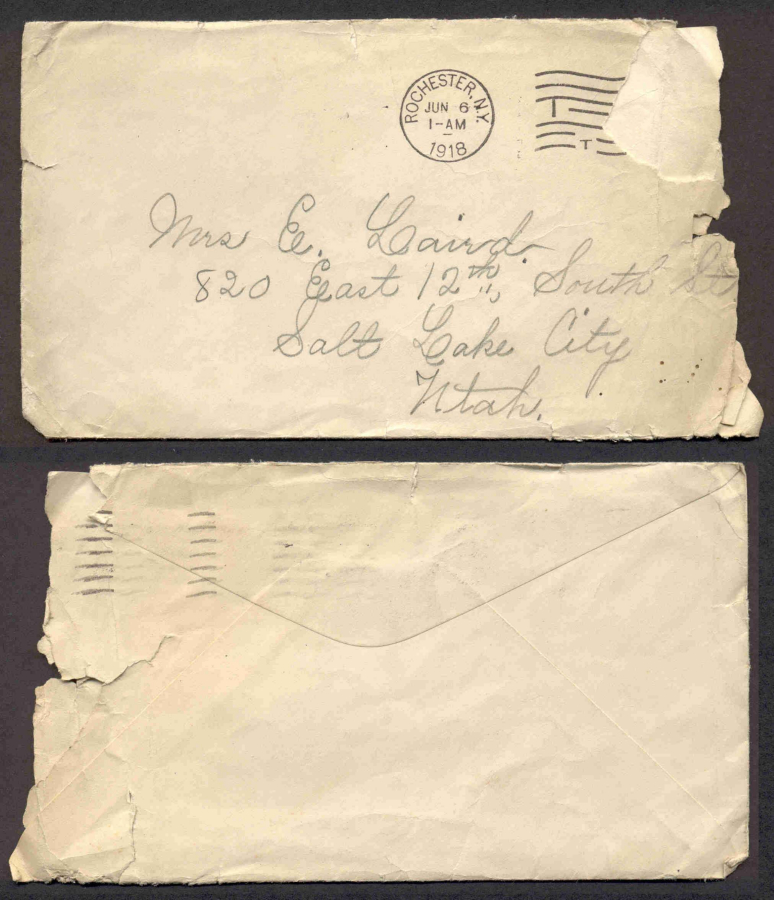 ROCHESTER, N.Y.
JUN 6
1-AM
1918
T
T
Mrs E. Laird.
820 East 12th, South St
Salt Lake City
Utah.